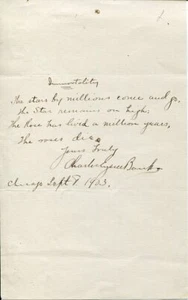 Immortality
The stars by millions come and go.
The Star remains on high.
The Rose has lived a million years.
The roses die.
Yours truly
Charles Eugene Banks.
Chicago Sept 8 1903.